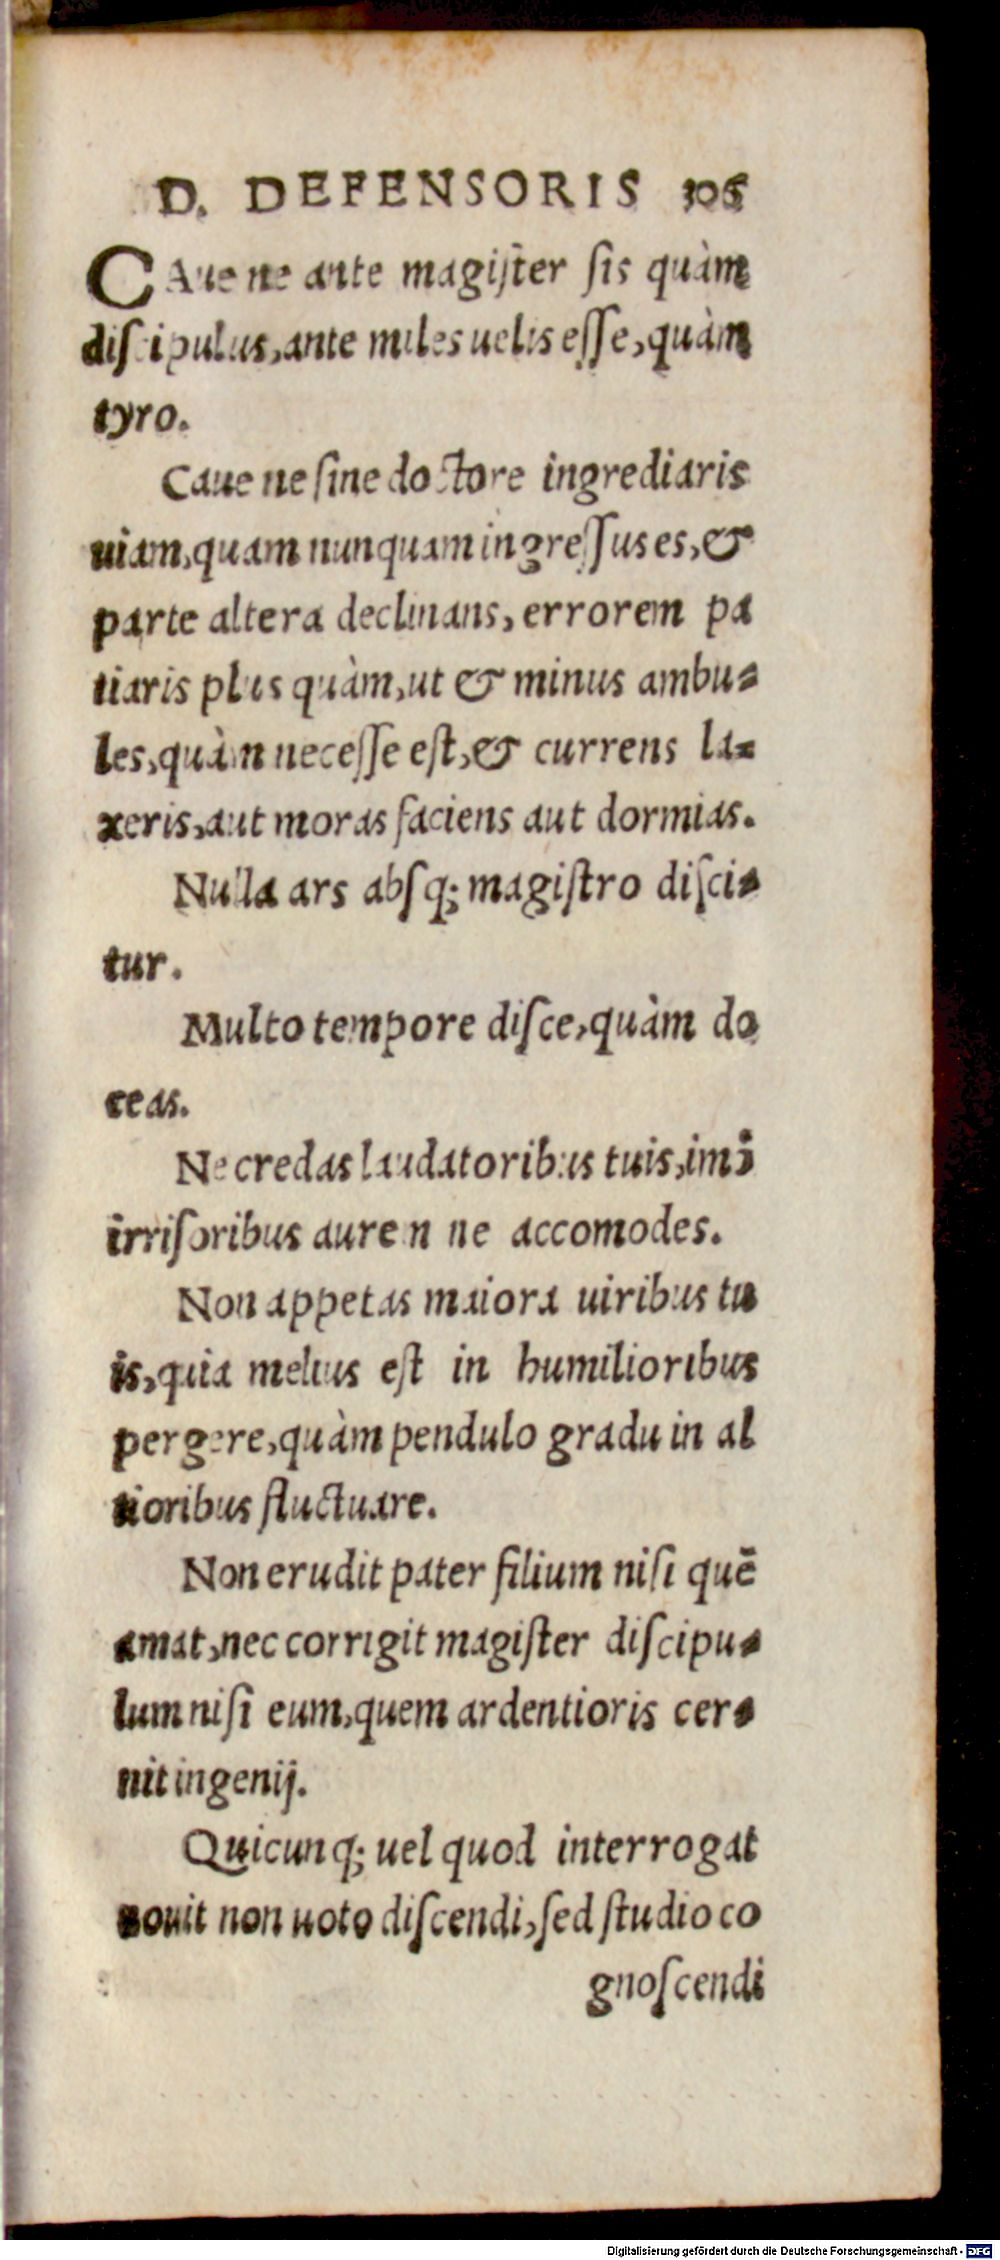 D. DEFENSORIS 106
CAue ne ante magister sis quàm
discipulus, ante miles uelis esse, quàm
tyro.
Caue ne sine doctore ingrediaris
uiam, quam nunquam ingressus es, &
parte altera declinans, errorem pa
tiaris plus quàm, ut & minus ambu-
les, quàm necesse est, & currens la-
xeris, aut moras faciens aut dormias.
Nulla ars absq; magistro disci-
tur.
Multo tempore disce, quàm do
ceas.
Ne credas laudatoribus tuis, imò
irrisoribus aurem ne accomodes.
Non appetas maiora uiribus tu
is, quia melius est in humilioribus
pergere, quàm pendulo gradu in al
tioribus fluctuare.
Non erudit pater filium nisi quē
amat, nec corrigit magister discipu-
lum nisi eum, quem ardentioris cer-
nit ingenij.
Quicunq; uel quod interrogat
nouit non uoto discendi, sed studio co
gnoscendi
Digitalisierung gefördert durch die Deutsche Forschungsgemeinschaft - DFG